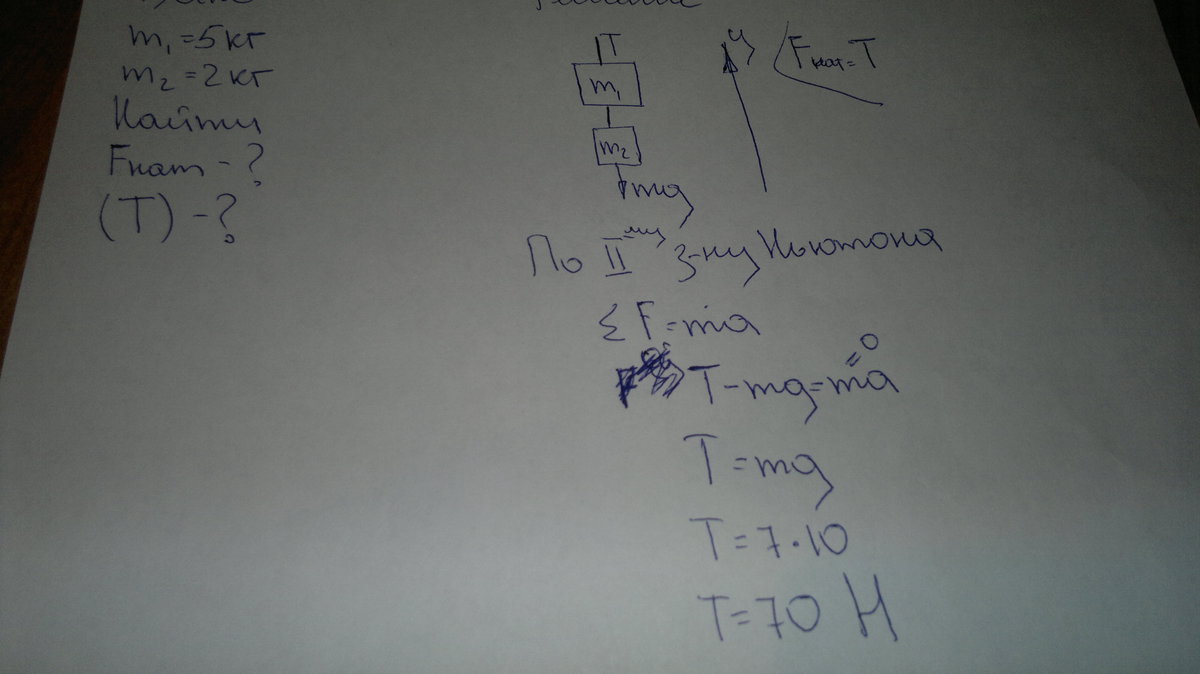 m₁ = 5 кг
m₂ = 2 кг
Найти
Fнат - ?
(T) - ?
T
m₁
m₂
mg
y
Fнат = T
По II ому з-ну Ньютона
Σ F = ma
T - mg = ma = 0
T = mg
T = 7 · 10
T = 70 Н